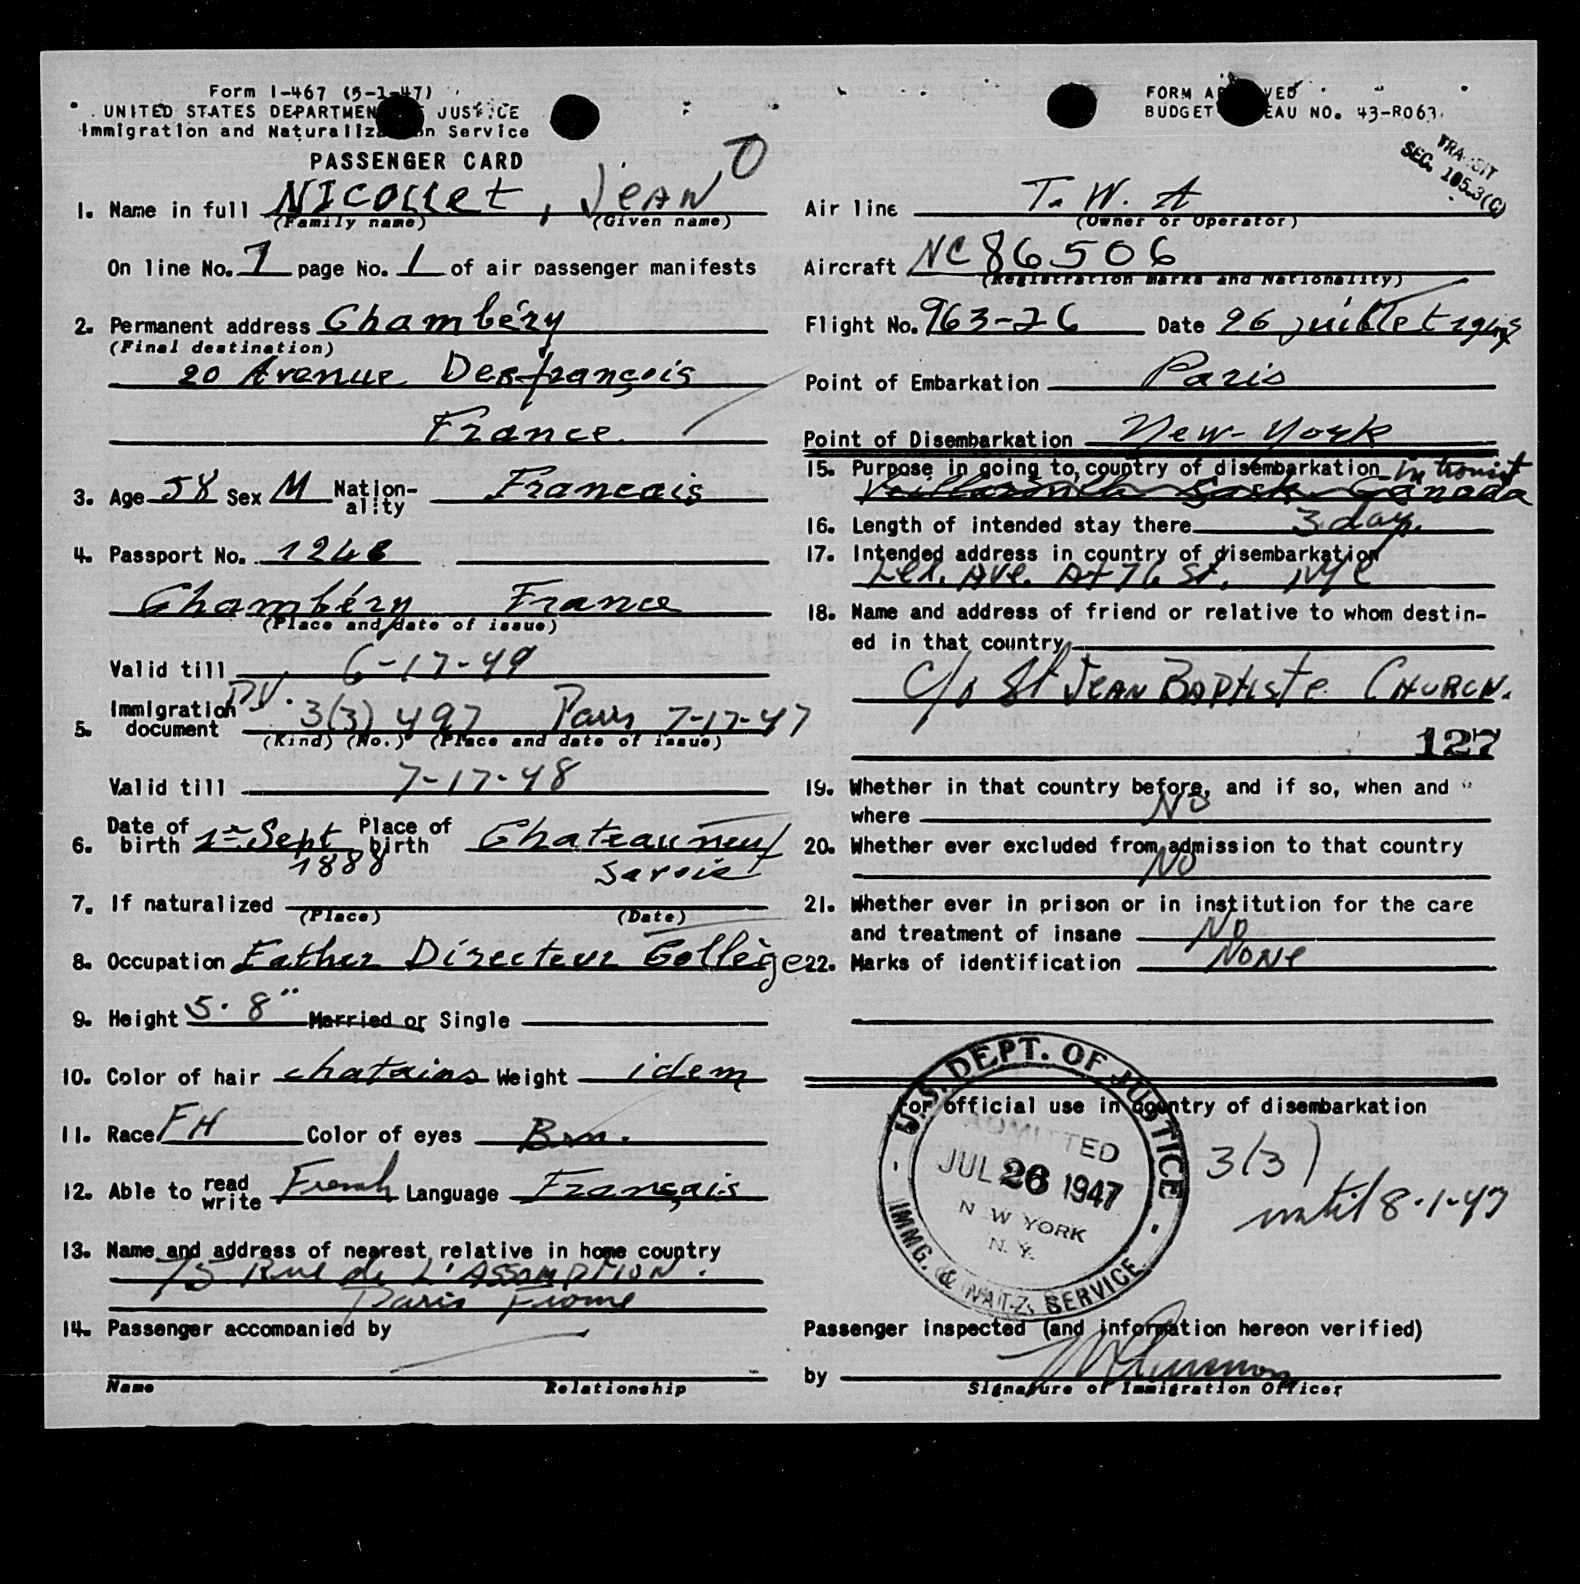 Form I-467 (5-1-47)
UNITED STATES DEPARTMENT OF JUSTICE
Immigration and Naturalization Service
PASSENGER CARD
FORM APPROVED
BUDGET BUREAU NO. 43-R063.
TRANSIT
SEC. 105.3(C)
O
1. Name in full NICOLLET, JEAN
(Family name) (Given name)
On line No. 7 page No. 1 of air passenger manifests
2. Permanent address Chambéry
(Final destination)
20 Avenue Desfrançois
France
3. Age 58 Sex M Nation-ality Francais
4. Passport No. 1248
Chambéry France
(Place and date of issue)
Valid till 6-17-49
5. Immigration document P.V. 3(3) 497 Paris 7-17-47
(Kind) (No.) (Place and date of issue)
Valid till 7-17-48
6. Date of birth 1er Sept 1888 Place of birth Chateauneuf
Savoie
7. If naturalized
(Place) (Date)
8. Occupation Father Directeur Collège
9. Height 5.8" Married or Single
10. Color of hair chatains Weight idem
11. Race FH Color of eyes Brn.
12. Able to read write French Language Français
13. Name and address of nearest relative in home country
75 Rue de L'ASSOMPTION.
Paris France
14. Passenger accompanied by
Name Relationship
Air line T. W. A
(Owner or Operator)
Aircraft NC 86506
(Registration marks and Nationality)
Flight No. 963-26 Date 26 juillet
Point of Embarkation Paris
Point of Disembarkation New-York
15. Purpose in going to country of disembarkation in transit
Sask Canada
16. Length of intended stay there 3 days.
17. Intended address in country of disembarkation
Lex. Ave. At 76 St. NYC
18. Name and address of friend or relative to whom destin-
ed in that country
c/o St JEAN BAPTISTE CHURCH.
127
19. Whether in that country before, and if so, when and
where No
20. Whether ever excluded from admission to that country
No
21. Whether ever in prison or in institution for the care
and treatment of insane No
22. Marks of identification None
For official use in country of disembarkation
U.S. DEPT. OF JUSTICE
ADMITTED
JUL 26 1947
NEW YORK
N. Y.
IMMG. & NAT'Z. SERVICE
3(3)
until 8-1-47
Passenger inspected (and information hereon verified)
by
Signature of Immigration Officer